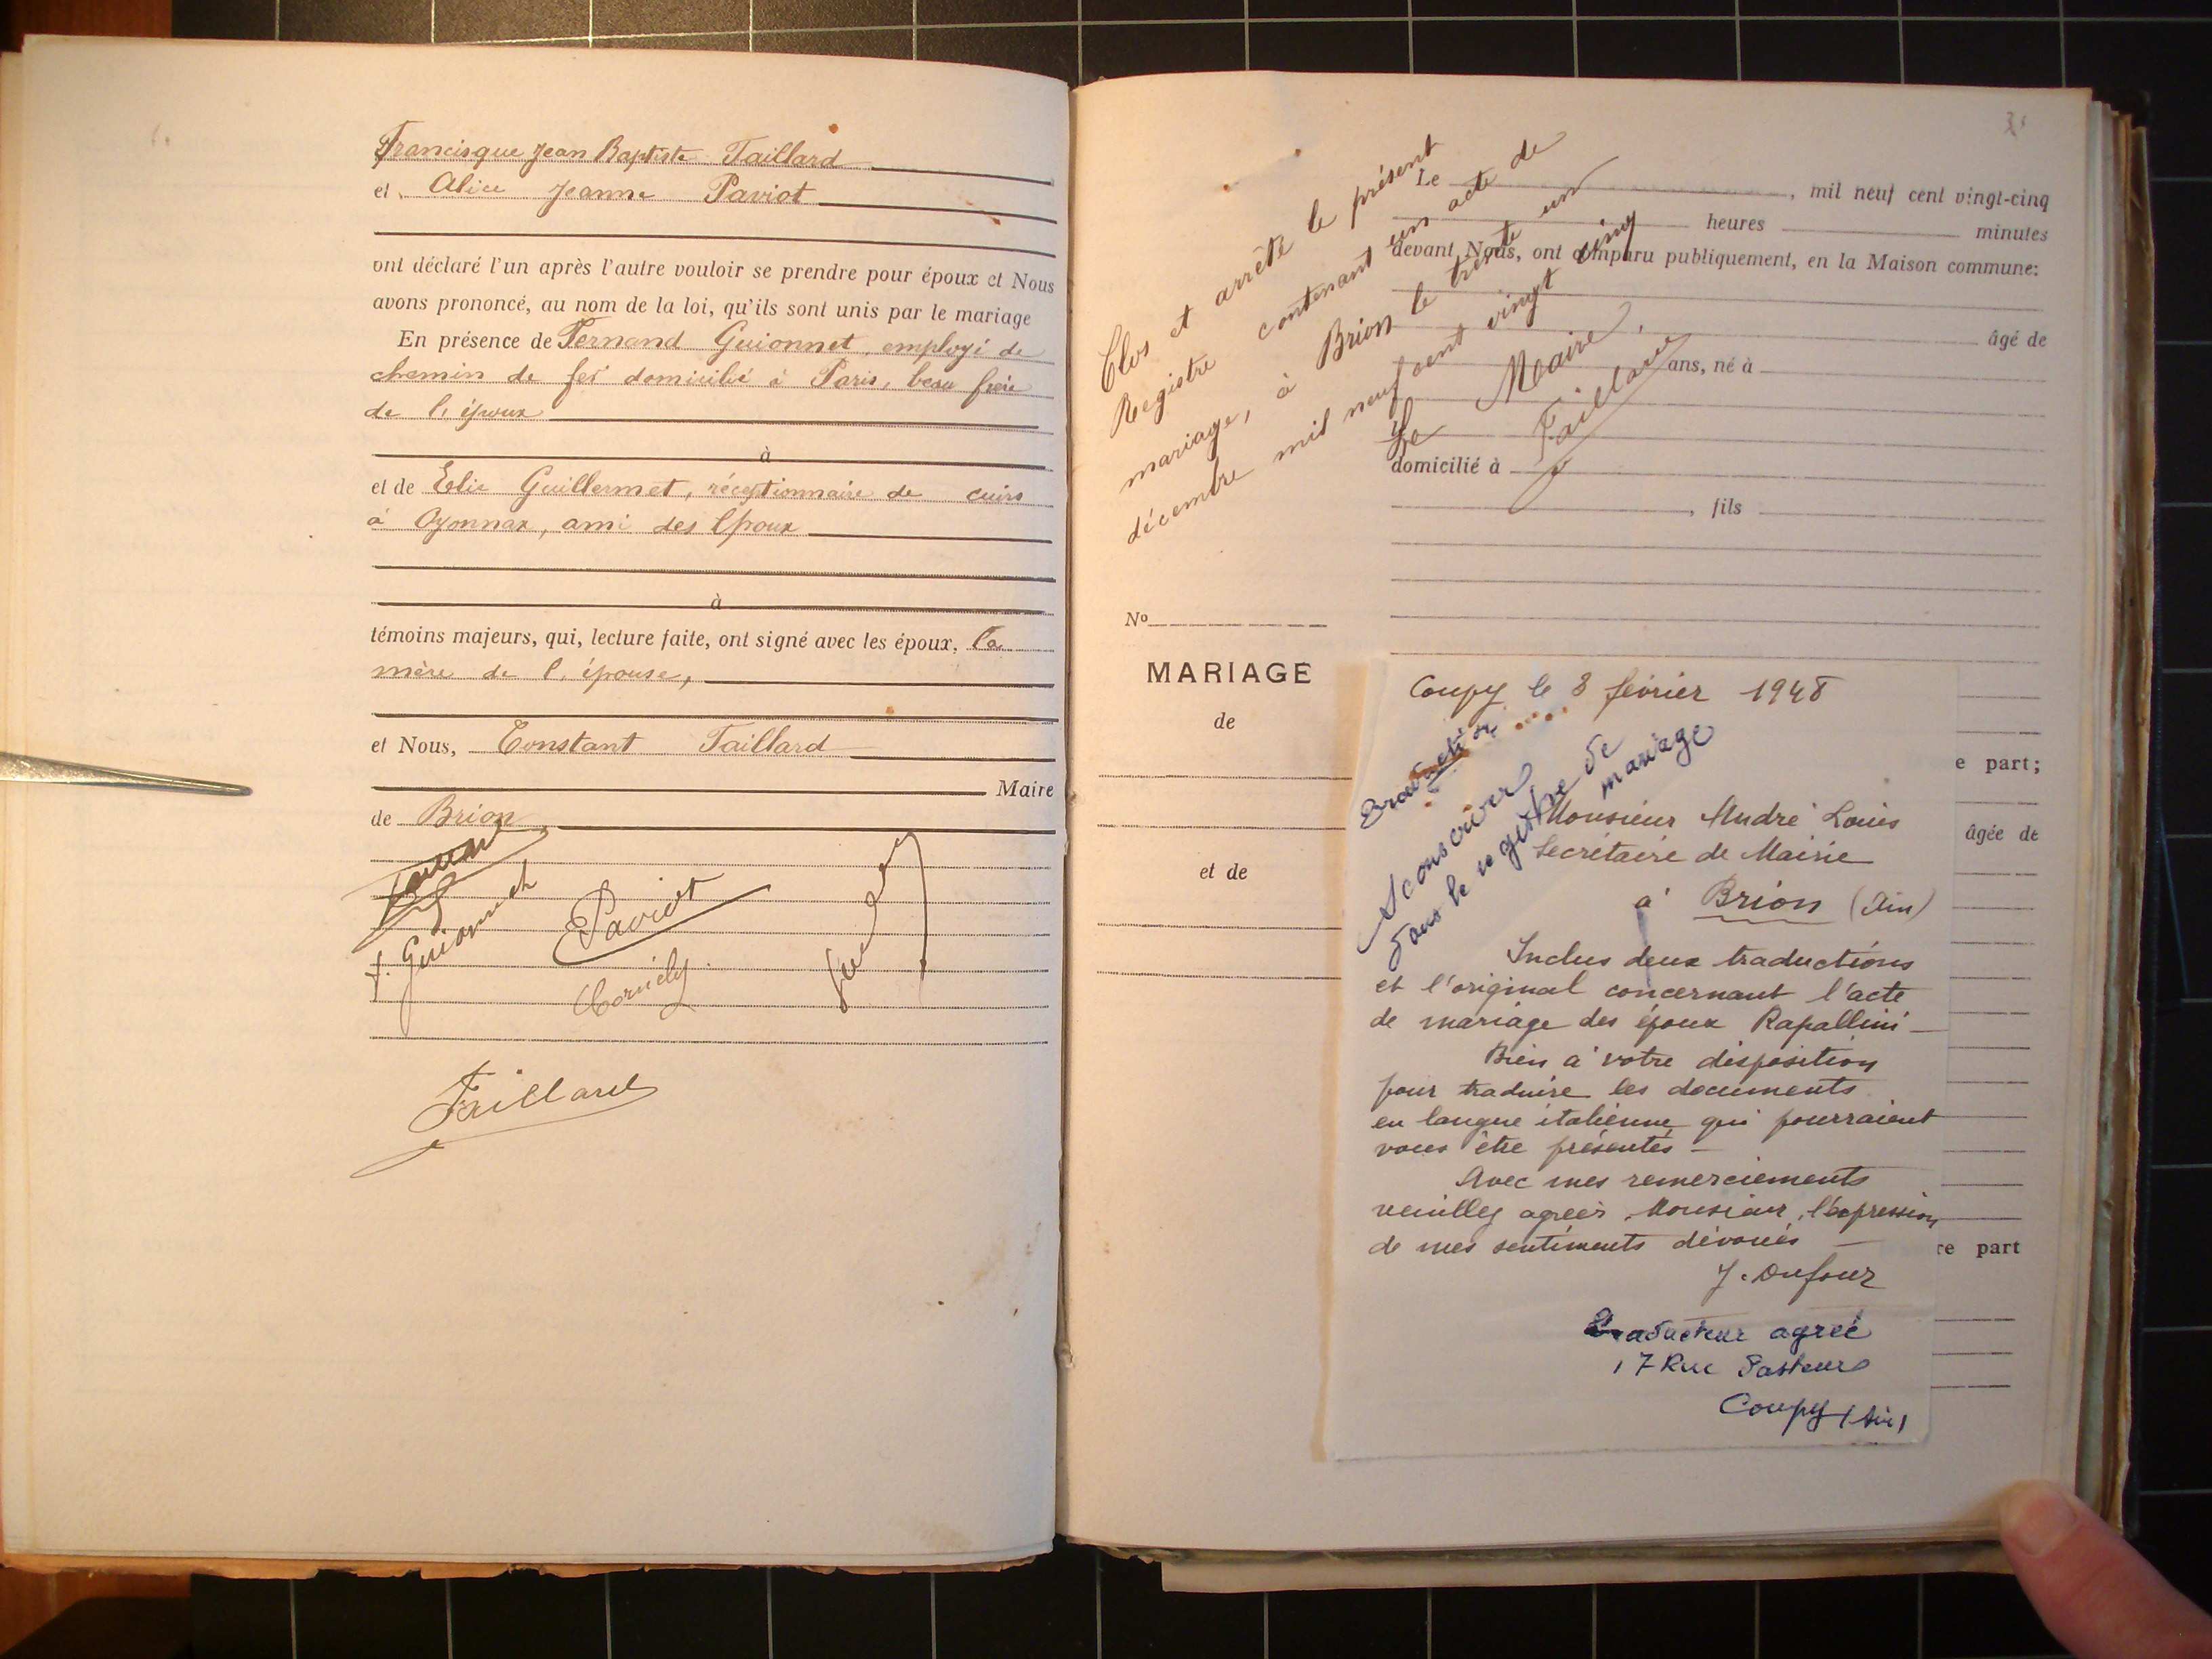 Francisque Jean Baptiste Taillard
et Alice Jeanne Paviot
ont déclaré l'un après l'autre vouloir se prendre pour époux et Nous
avons prononcé, au nom de la loi, qu'ils sont unis par le mariage
En présence de Fernand Guionnet, employé de
chemin de fer domicilié à Paris, beau frère
de l'époux
à
et de Elie Guillermet, réceptionnaire de cuirs
à Oyonnax, ami des Epoux
à
témoins majeurs, qui, lecture faite, ont signé avec les époux, la
mère de l'épouse,
et Nous, Constant Taillard
Maire
de Brion
F. Guionnet
Paviot
Cornély
Taillard
Clos et arrêté le présent
Registre contenant un acte de
mariage, à Brion le trente un
décembre mil neuf cent vingt cinq
Le Maire,
Taillard
Le , mil neuf cent vingt-cinq
heures minutes
devant Nous, ont comparu publiquement, en la Maison commune:
âgé de
ans, né à
domicilié à
, fils
No
MARIAGE
de
et de
e part;
âgée de
re part
Coupy le 3 février 1948
Traduction
A conserver
dans le registre de
mariage
Monsieur André Louis
Secrétaire de Mairie
à Brion (Ain)
Inclus deux traductions
et l'original concernant l'acte
de mariage des époux Rapallini -
Bien à votre disposition
pour traduire les documents
en langue italienne qui pourraient
vous être présentés -
Avec mes remerciements
veuillez agréer, Monsieur, l'expression
de mes sentiments dévoués -
J. Dufour
Traducteur agréé
17 Rue Pasteur
Coupy (Ain)